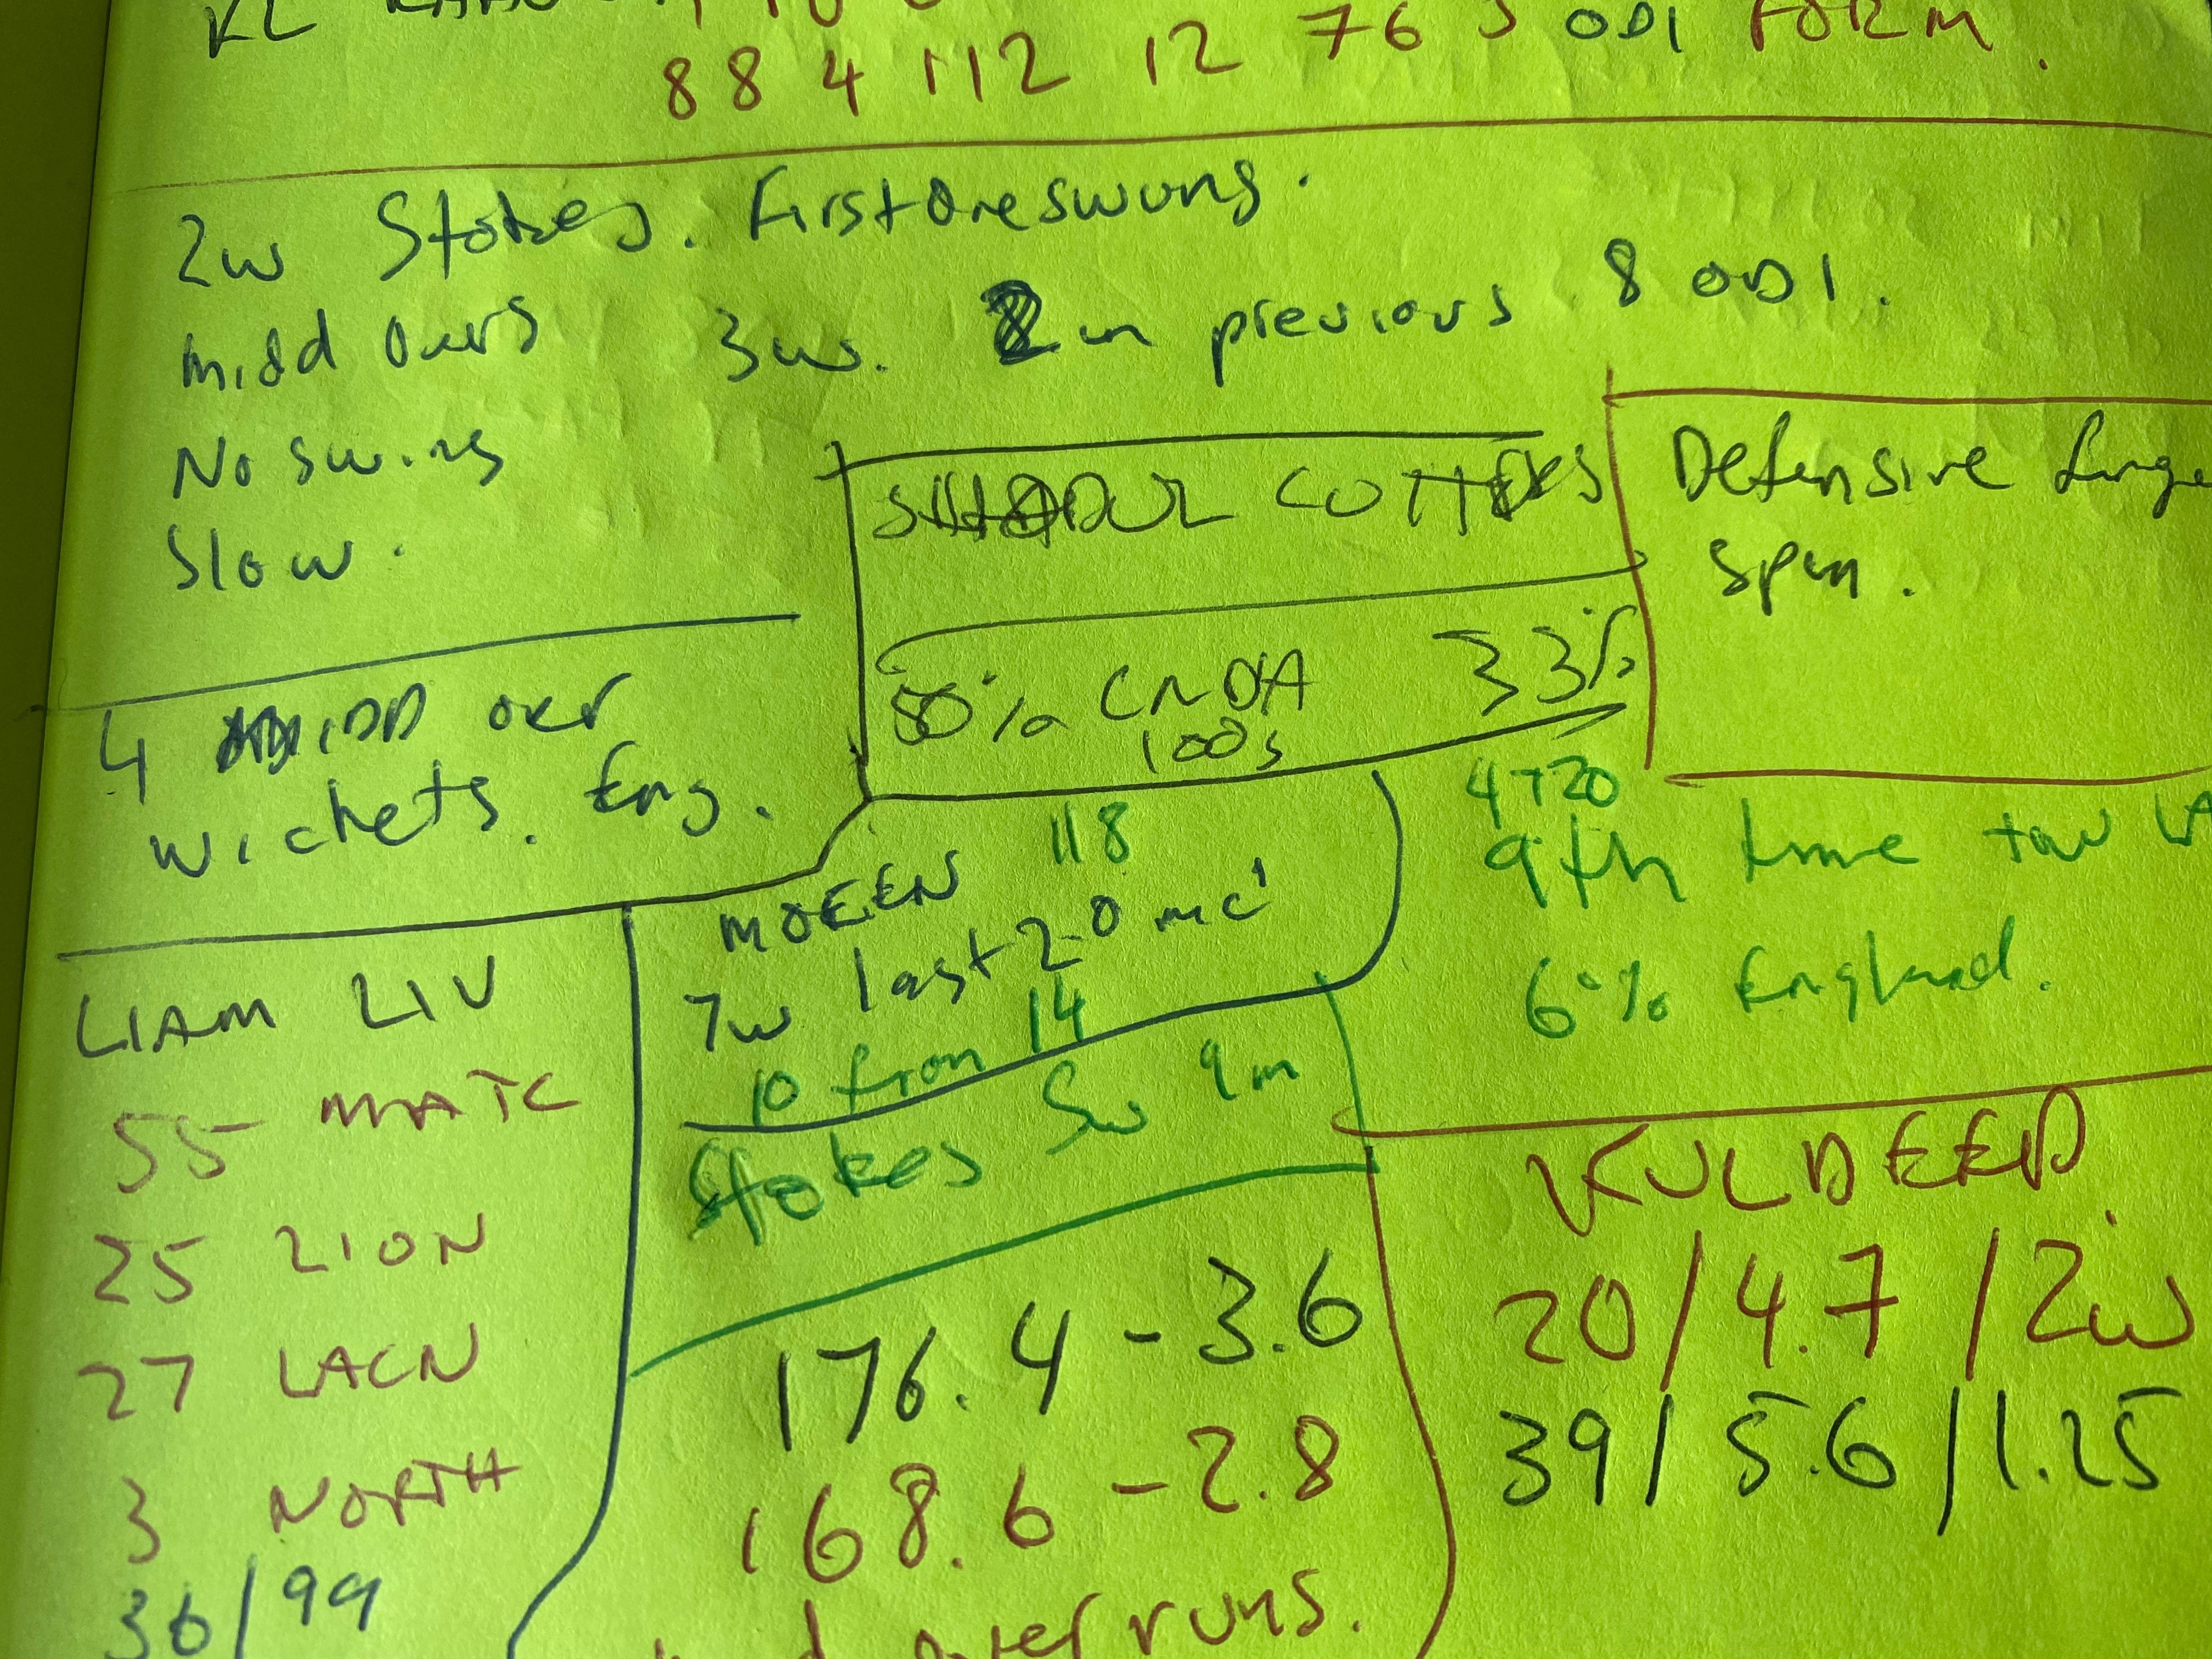 KL
88 4 112 12 76 5 ODI FORM.
2w Stokes. First one swung.
midd overs 3ws. 2 in previous 8 ODI.
No swing
Slow.
SHARDUL CUTTERS
50% CNDA 33%
100s
Defensive finge
spin.
4 MIDD over
wickets. Eng.
MOEEN 118
7w last 20 mc'
10 from 14
Stokes 5w 9m
4 T20
9th time
6% England.
LIAM LIV
55 MATC
25 LION
27 LACN
3 NORTH
36/99
176.4 - 3.6
168.6 - 2.8
over runs.
KULDEEP
20/4.7/2w
39/5.6/1.25